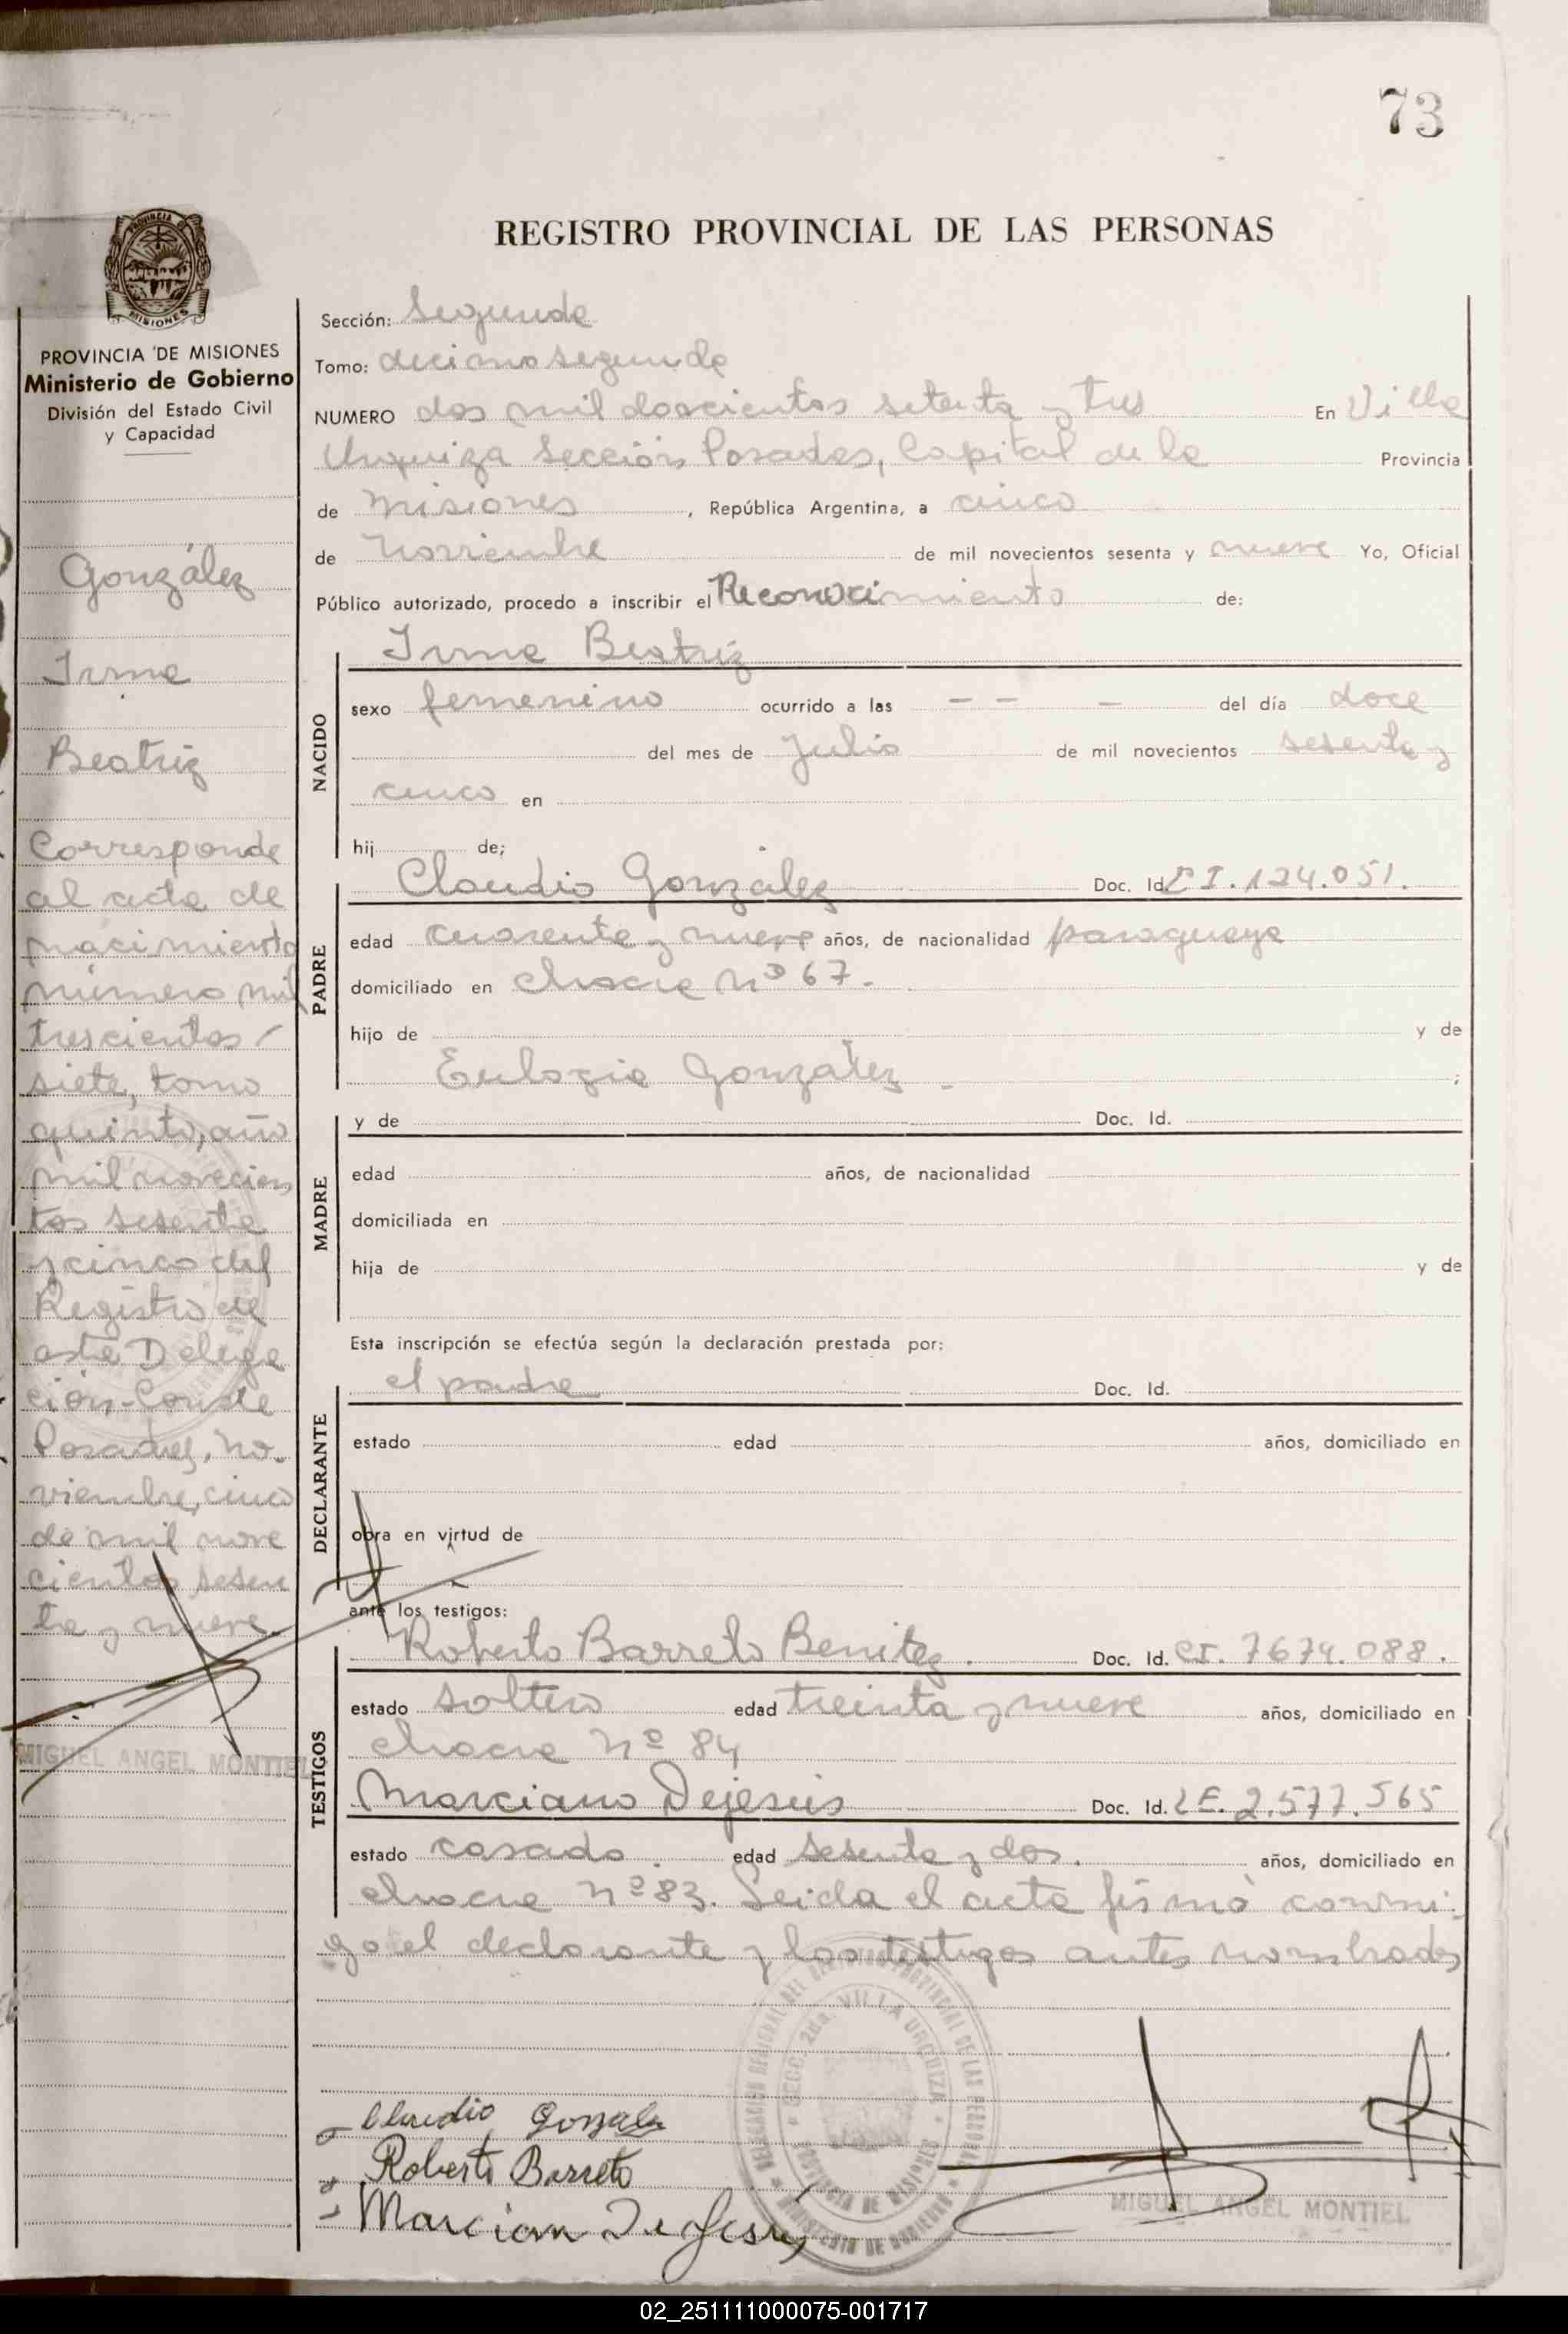 73
REGISTRO PROVINCIAL DE LAS PERSONAS
PROVINCIA DE MISIONES
Ministerio de Gobierno
División del Estado Civil
y Capacidad
González
Irma
Beatriz
Corresponde
al acta de
nacimiento
número mil
trescientos
siete, tomo
quinto, año
mil novecien
tos sesenta
y cinco del
Registro de
esta Delega
ción-Conste
Posadas, no-
viembre, cinco
de mil nove
cientos sesen
ta y nueve.
MIGUEL ANGEL MONTIEL
Sección: Segunda
Tomo: decimo segundo
NUMERO dos mil doscientos setenta y tres En Villa
Urquiza Sección Posadas, Capital de la Provincia
de Misiones, República Argentina, a cinco
de Noviembre de mil novecientos sesenta y nueve Yo, Oficial
Público autorizado, procedo a inscribir el Reconocimiento de:
NACIDO
Irma Beatriz
sexo femenino ocurrido a las - - - del día doce
del mes de Julio de mil novecientos sesenta y
cinco en
hij de;
PADRE
Claudio González Doc. Id. CI. 124.051.
edad cuarenta y nueve años, de nacionalidad paraguaya
domiciliado en chacra nº 67.
hijo de y de
Eulogia González - ;
MADRE
y de Doc. Id.
edad años, de nacionalidad
domiciliada en
hija de y de
Esta inscripción se efectúa según la declaración prestada por:
DECLARANTE
el padre Doc. Id.
estado edad años, domiciliado en
obra en virtud de
ante los testigos:
TESTIGOS
Roberto Barreto Benitez. Doc. Id. CI. 7674.088.
estado soltero edad treinta y nueve años, domiciliado en
chacra nº 84
Marciano Dejesús Doc. Id. LE. 2.577.565
estado casado. edad sesenta y dos. años, domiciliado en
chacra nº 83. Leida el acta firmó conmi-
go el declarante y los testigos antes nombrados
Claudio Gonzalez
Roberto Barreto
Marcian De Jesus
SECC. 2da. VILLA URQUIZA
PROVINCIA DE MISIONES
MINISTERIO DE GOBIERNO
MIGUEL ANGEL MONTIEL
02_251111000075-001717